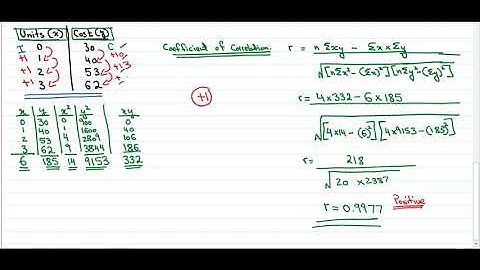 Units (x) Cost (y)
I 0 30 C
+1 1 40 +10
+1 2 53 +13
+1 3 62
x y x² y² xy
0 30 0 900 0
1 40 1 1600 40
2 53 4 2809 106
3 62 9 3844 186
6 185 14 9153 332
+1
Coefficient of Correlation r = nΣxy - Σx×Σy
√[nΣx²-(Σx)²][nΣy²-(Σy)²]
r= 4×332-6×185
√[4×14-(6)²][4×9153-(185)²]
r= 218
√20 × 2387
r=0.9977 Positive